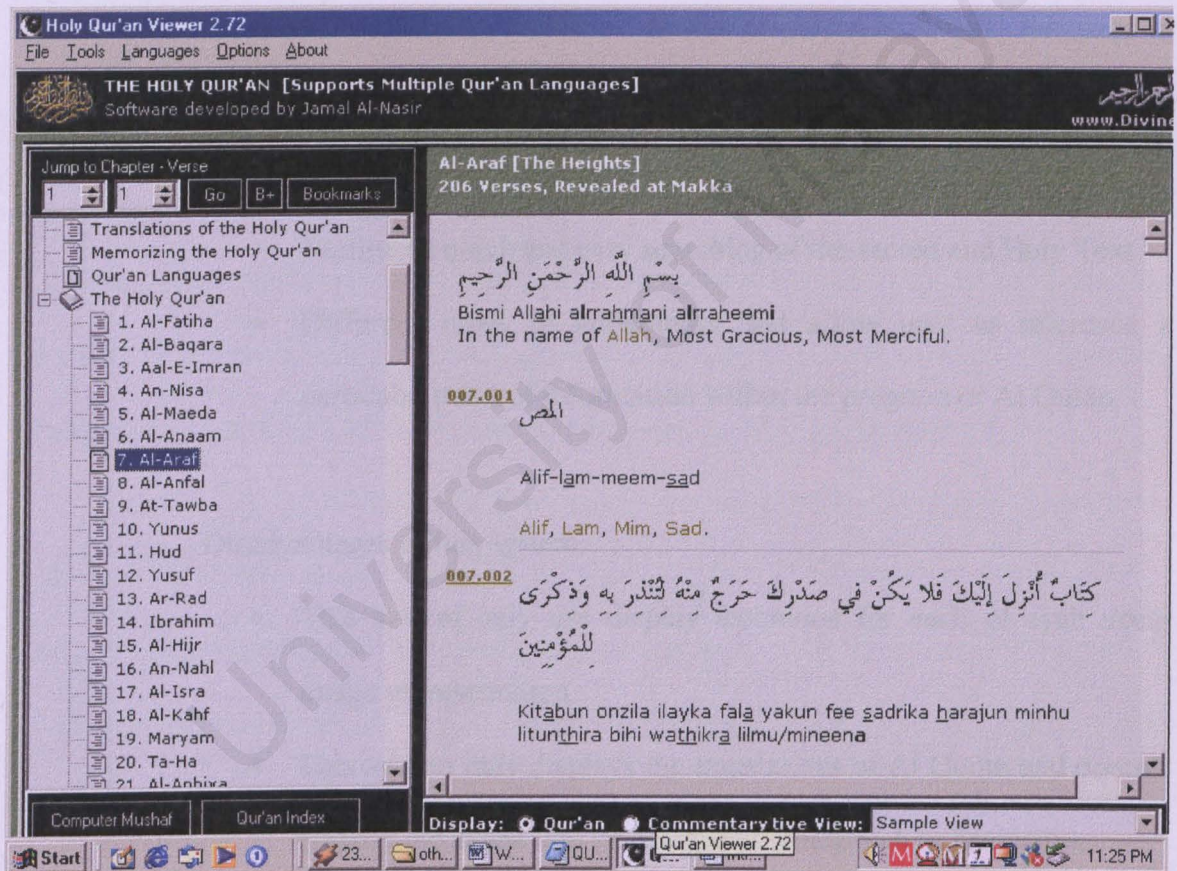 Holy Qur'an Viewer 2.72
File Tools Languages Options About
THE HOLY QUR'AN [Supports Multiple Qur'an Languages]
Software developed by Jamal Al-Nasir
www.Divine
Jump to Chapter - Verse
1 1 Go B+ Bookmarks
Translations of the Holy Qur'an
Memorizing the Holy Qur'an
Qur'an Languages
The Holy Qur'an
1. Al-Fatiha
2. Al-Baqara
3. Aal-E-Imran
4. An-Nisa
5. Al-Maeda
6. Al-Anaam
7. Al-Araf
8. Al-Anfal
9. At-Tawba
10. Yunus
11. Hud
12. Yusuf
13. Ar-Rad
14. Ibrahim
15. Al-Hijr
16. An-Nahl
17. Al-Isra
18. Al-Kahf
19. Maryam
20. Ta-Ha
21. Al-Anbiya
Computer Mushaf Qur'an Index
Al-Araf [The Heights]
206 Verses, Revealed at Makka
بِسْمِ اللَّهِ الرَّحْمَنِ الرَّحِيمِ
Bismi Allahi alrrahmani alrraheemi
In the name of Allah, Most Gracious, Most Merciful.
007.001
المص
Alif-lam-meem-sad
Alif, Lam, Mim, Sad.
007.002
كِتَابٌ أُنْزِلَ إِلَيْكَ فَلا يَكُنْ فِي صَدْرِكَ حَرَجٌ مِنْهُ لِتُنْذِرَ بِهِ وَذِكْرَى
لِلْمُؤْمِنِينَ
Kitabun onzila ilayka fala yakun fee sadrika harajun minhu
litunthira bihi wathikra lilmu/mineena
Display: Qur'an Commentary tive View: Sample View
Qur'an Viewer 2.72
Start 23... oth... W... QU... 11:25 PM
University of Malaya